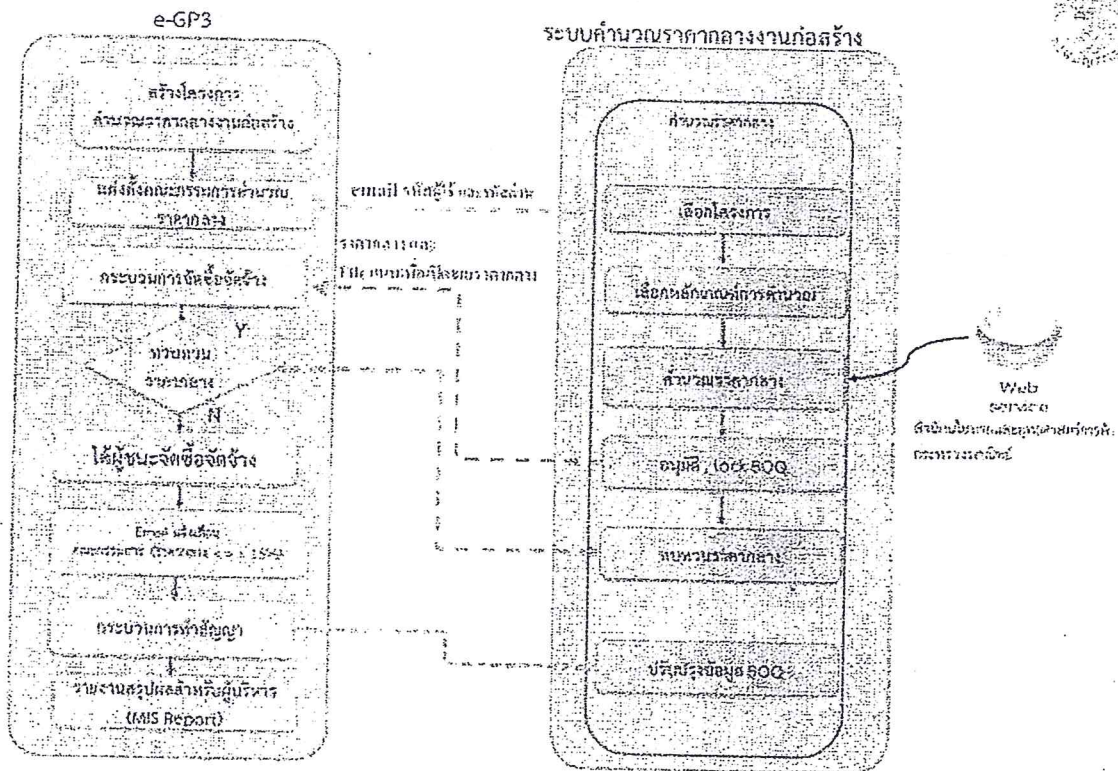 e-GP3
สร้างโครงการ
คำนวณราคากลางงานก่อสร้าง
แต่งตั้งคณะกรรมการคำนวณ
ราคากลาง
กระบวนการจัดซื้อจัดจ้าง
Y
ทบทวน
ราคากลาง
N
ได้ผู้ชนะจัดซื้อจัดจ้าง
Email แจ้งเตือน
กระบวนการทำสัญญา
รายงานสรุปผลสำหรับผู้บริหาร
(MIS Report)
email รหัสผู้ใช้ และรหัสผ่าน
ราคากลางและ
File
ระบบคำนวณราคากลางงานก่อสร้าง
คำนวณราคากลาง
เลือกโครงการ
เลือกหลักเกณฑ์การคำนวณ
คำนวณราคากลาง
อนุมัติ , Lock BOQ
ทบทวนราคากลาง
ปรับปรุงข้อมูล BOQ
Web
service
สำนักนโยบายและยุทธศาสตร์การค้า
กระทรวงพาณิชย์